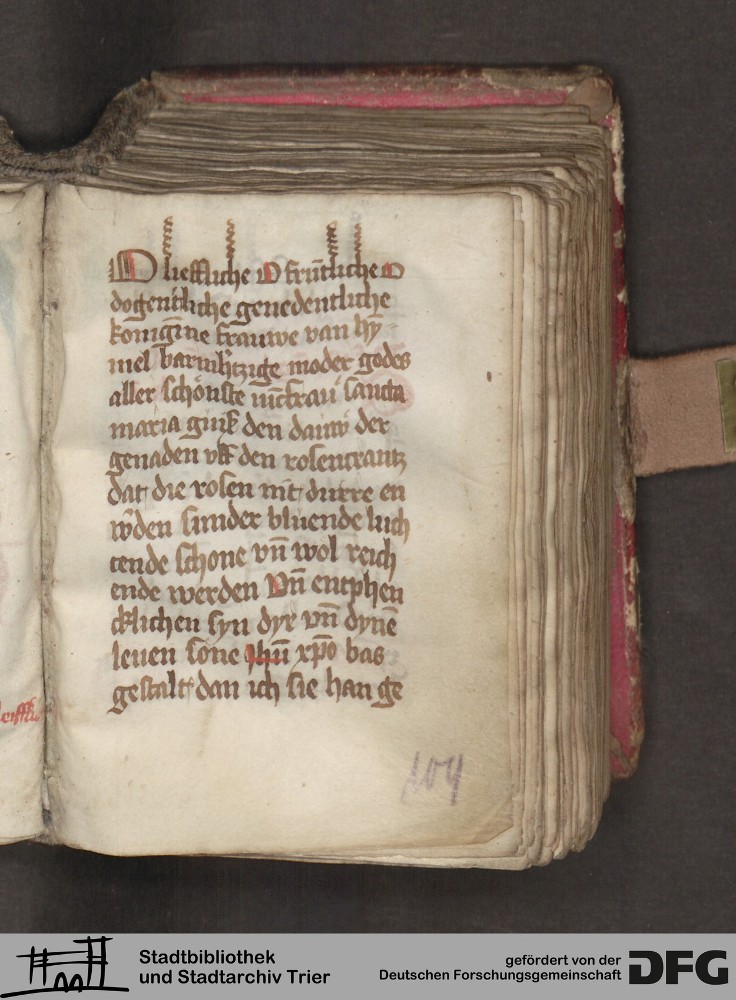 O lieffliche O fruntliche O
dogentliche genedentliche
konigīne frauwe van hȳ
mel barmhtzige moder godes
aller schonste iūcfrau sancta
maria guiß den dauw der
genaden vff den rosencrantz
dat die rosen nit durre en
wden sunder bluende luch
tende schone vn̄ wol reich
ende werden Vn̄ entphen
cklichen syn dyr vn̄ dynē
leuen sone Jhū xp̄o bas
gestalt dan ich sie han ge
104
Stadtbibliothek
und Stadtarchiv Trier
gefördert von der
Deutschen Forschungsgemeinschaft
DFG